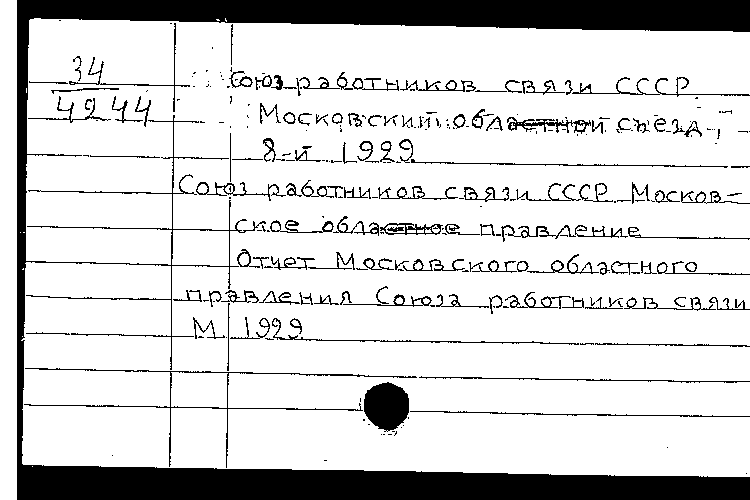 34
4244
Союз работников связи СССР.
Московский областной съезд,
8-й 1929
Союз работников связи СССР Москов-
ское областное правление
Отчет Московского областного
правления Союза работников связи
М. 1929